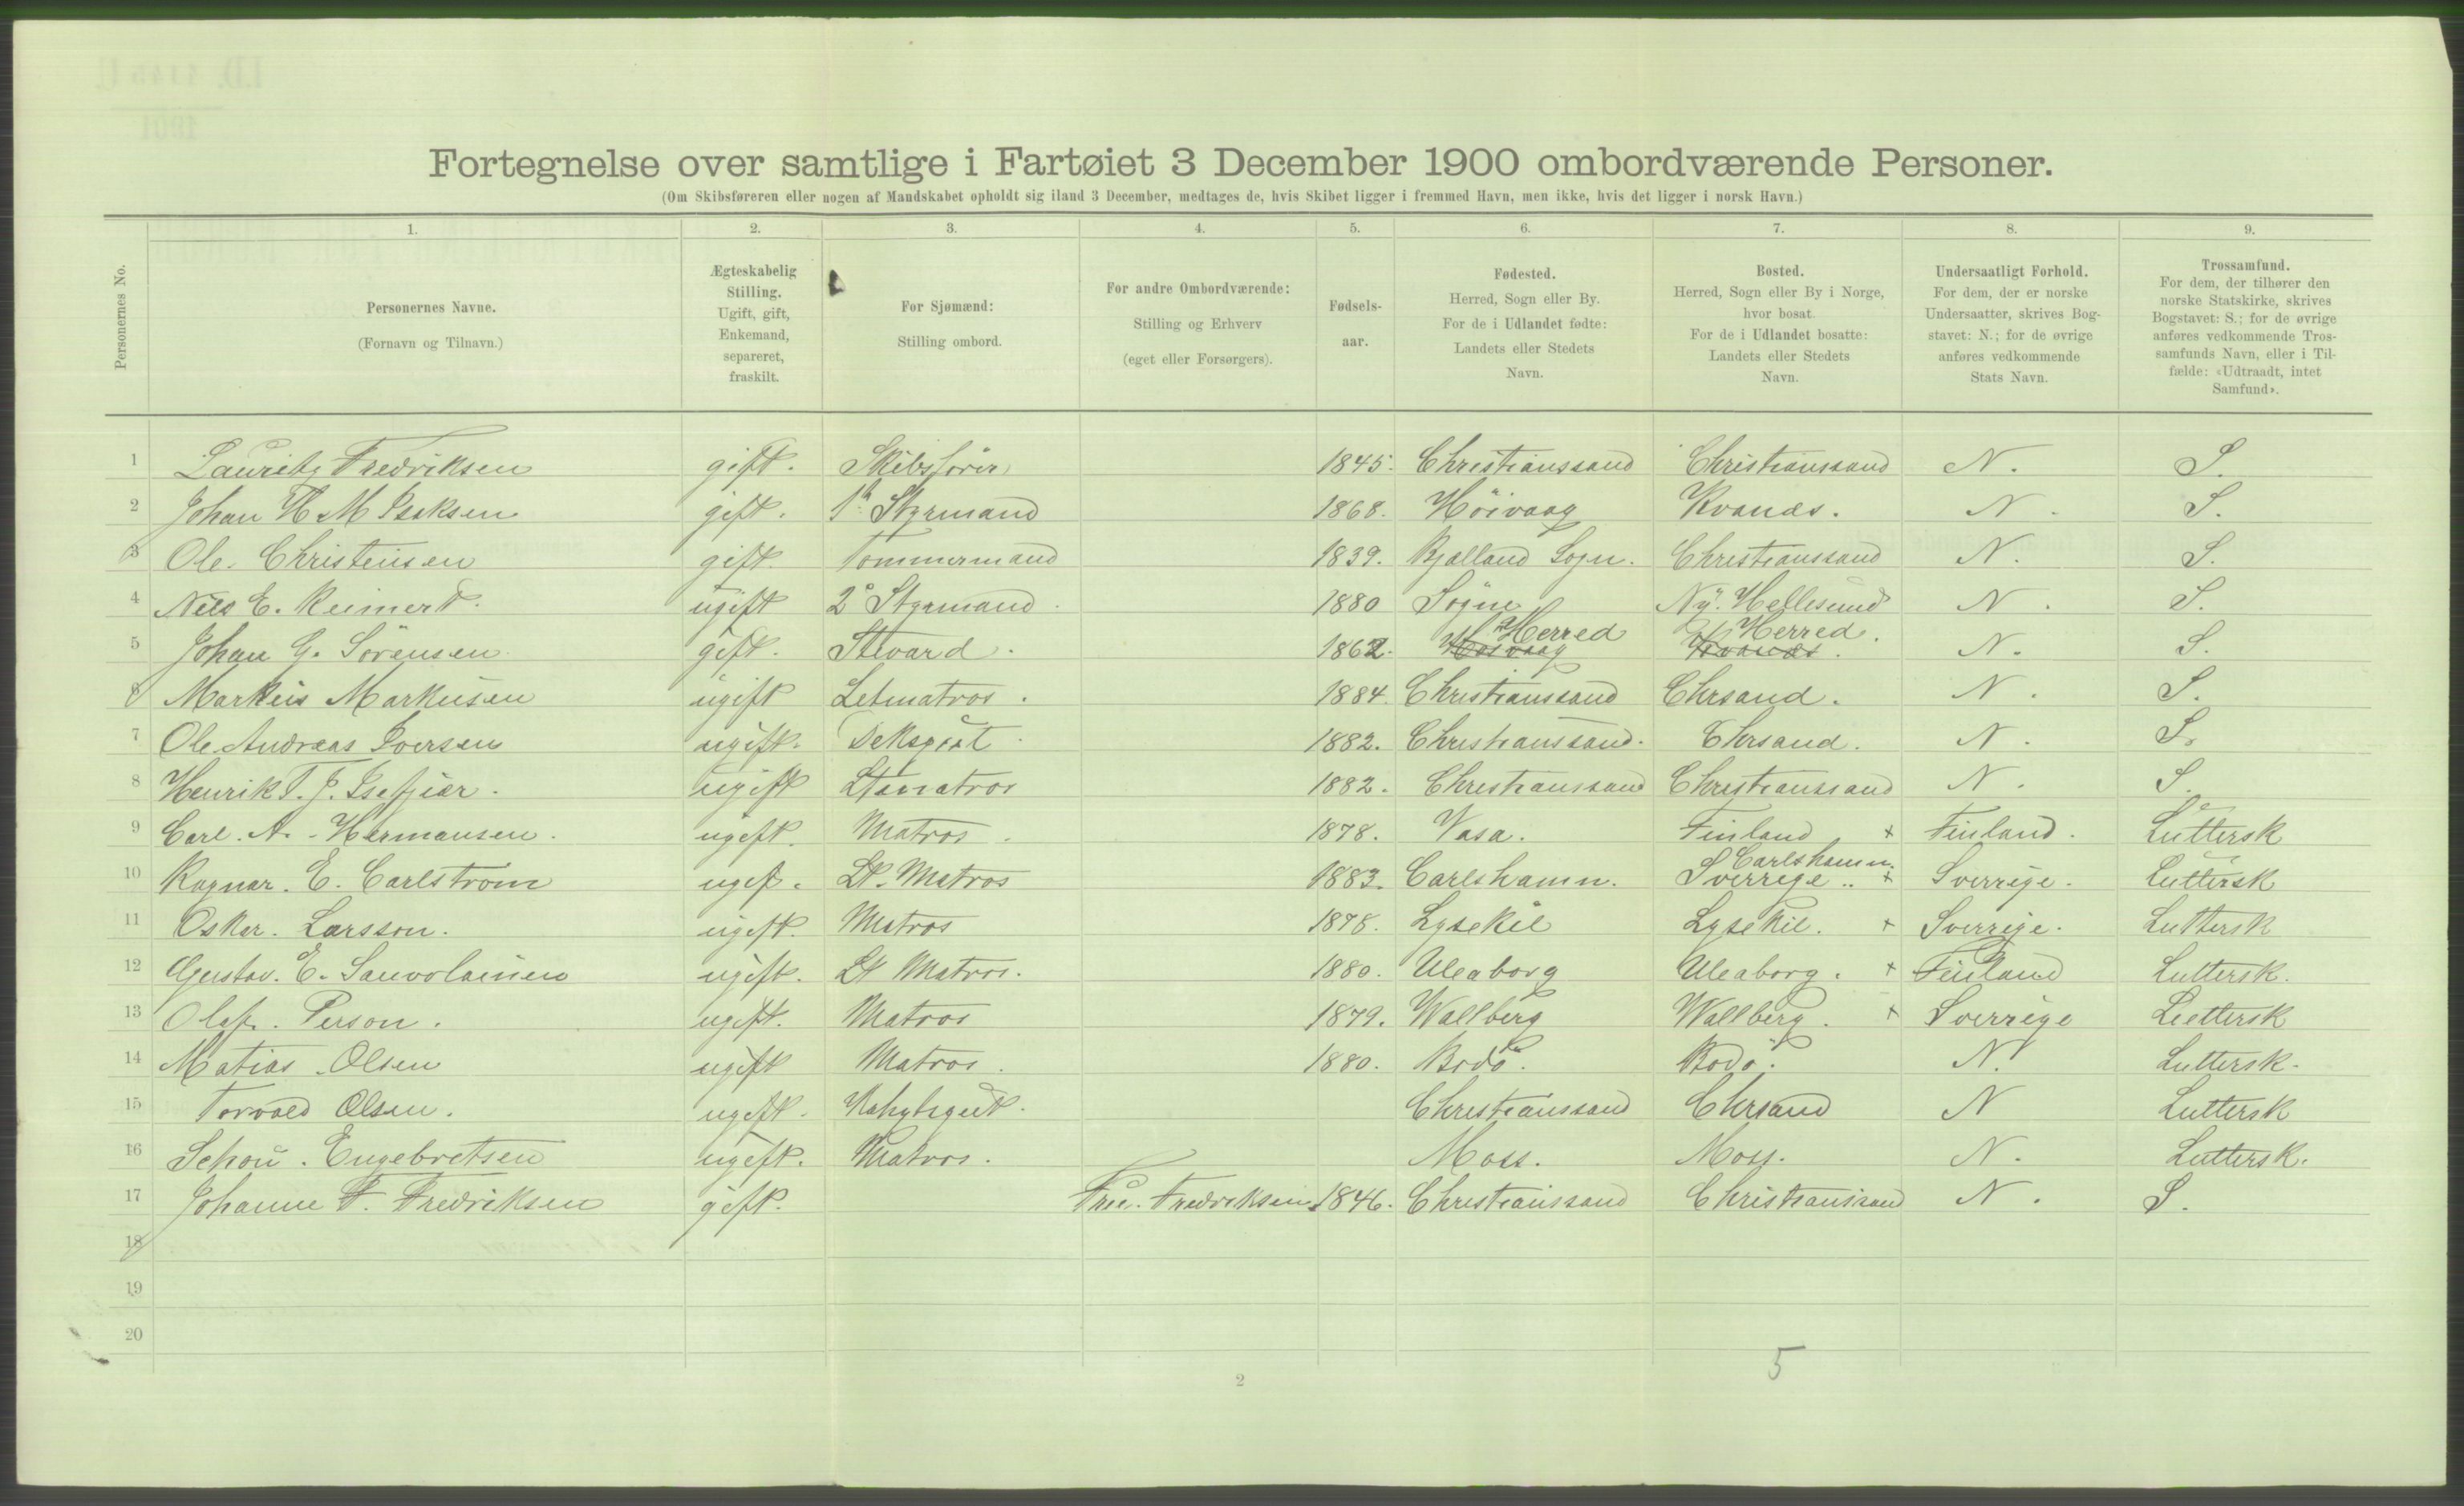 Fortegnelse over samtlige i Fartøiet 3 December 1900 ombordværende Personer.
(Om Skibsføreren eller nogen af Mandskabet opholdt sig iland 3 December, medtages de, hvis Skibet ligger i fremmed Havn, men ikke, hvis det ligger i norsk Havn.)
1. 2. 3. 4. 5. 6. 7. 8. 9.
Personernes No.
Personernes Navne.
(Fornavn og Tilnavn.)
Ægteskabelig
Stilling.
Ugift, gift,
Enkemand,
separeret,
fraskilt.
For Sjømænd:
Stilling ombord.
For andre Ombordværende:
Stilling og Erhverv
(eget eller Forsørgers).
Fødsels-
aar.
Fødested.
Herred, Sogn eller By.
For de i Udlandet fødte:
Landets eller Stedets
Navn.
Bosted.
Herred, Sogn eller By i Norge,
hvor bosat.
For de i Udlandet bosatte:
Landets eller Stedets
Navn.
Undersaatligt Forhold.
For dem, der er norske
Undersaatter, skrives Bog-
stavet: N.; for de øvrige
anføres vedkommende
Stats Navn.
Trossamfund.
For dem, der tilhører den
norske Statskirke, skrives
Bogstavet: S.; for de øvrige
anføres vedkommende Tros-
samfunds Navn, eller i Til-
fælde: «Udtraadt, intet
Samfund».
1 Lauritz Fredriksen gift. Skibsförer 1845. Christianssand Christianssand N. S.
2 Johan H M Isaksen gift. 1ste Styrmand 1868. Höivaag Kvanæs. N. S.
3 Ole. Christensen gift. Tømmermand 1839. Bjelland Sogn. Christianssand N. S.
4 Nils E. Reimert. ugift 2° Styrmand. 1880 Sögne Ny. Hellesund N. S.
5 Johan G. Sörensen. gift. Stevard. 1862. Höivaag Herred Kvanæs. Herred. N. S.
6 Markus Markusen ugift Letmatros. 1884. Christianssand Chrsand. N. S.
7 Ole Andreas Iversen ugift. Deksgut. 1882. Christianssand. Chrsand. N. S.
8 Henrik T. J. ugift Ltmatros 1882. Christianssand Christianssand N. S.
9 Carl. A. Hermansen. ugift. Matros. 1878. Vasa. Finland + Finland. Luttersk
10 Ragnar. E. Carlstrom ugif. Lt. Matros 1883. Carlshamn. Sverrige.. Carlshamn. + Sverrige. Luttersk
11 Oskar. Larsson. ugift. Matros 1878. Lysekil Lysekil. + Sverrige. Luttersk
12 Gustav. E. Sauvolainen ugift. Lt Matros. 1880. Uleaborg Uleaborg. + Finland Luttersk.
13 Olaf. Person. ugift. Matros 1879. Wallberg Wallberg. + Sverrige Luttersk
14 Matias Olsen ugift Matros. 1880. Bodö. Bodö. N. Luttersk.
15 Torvald Olsen. ugift. Kahytsgut. Christianssand Chrsand N Luttersk
16 Schou. Engebretsen ugift. Matros. Moss. Moss. N. Luttersk.
17 Johanne F. Fredriksen gift. Fru. Fredriksen 1846. Christianssand Christianssand N. S.
18
19
20
2
5